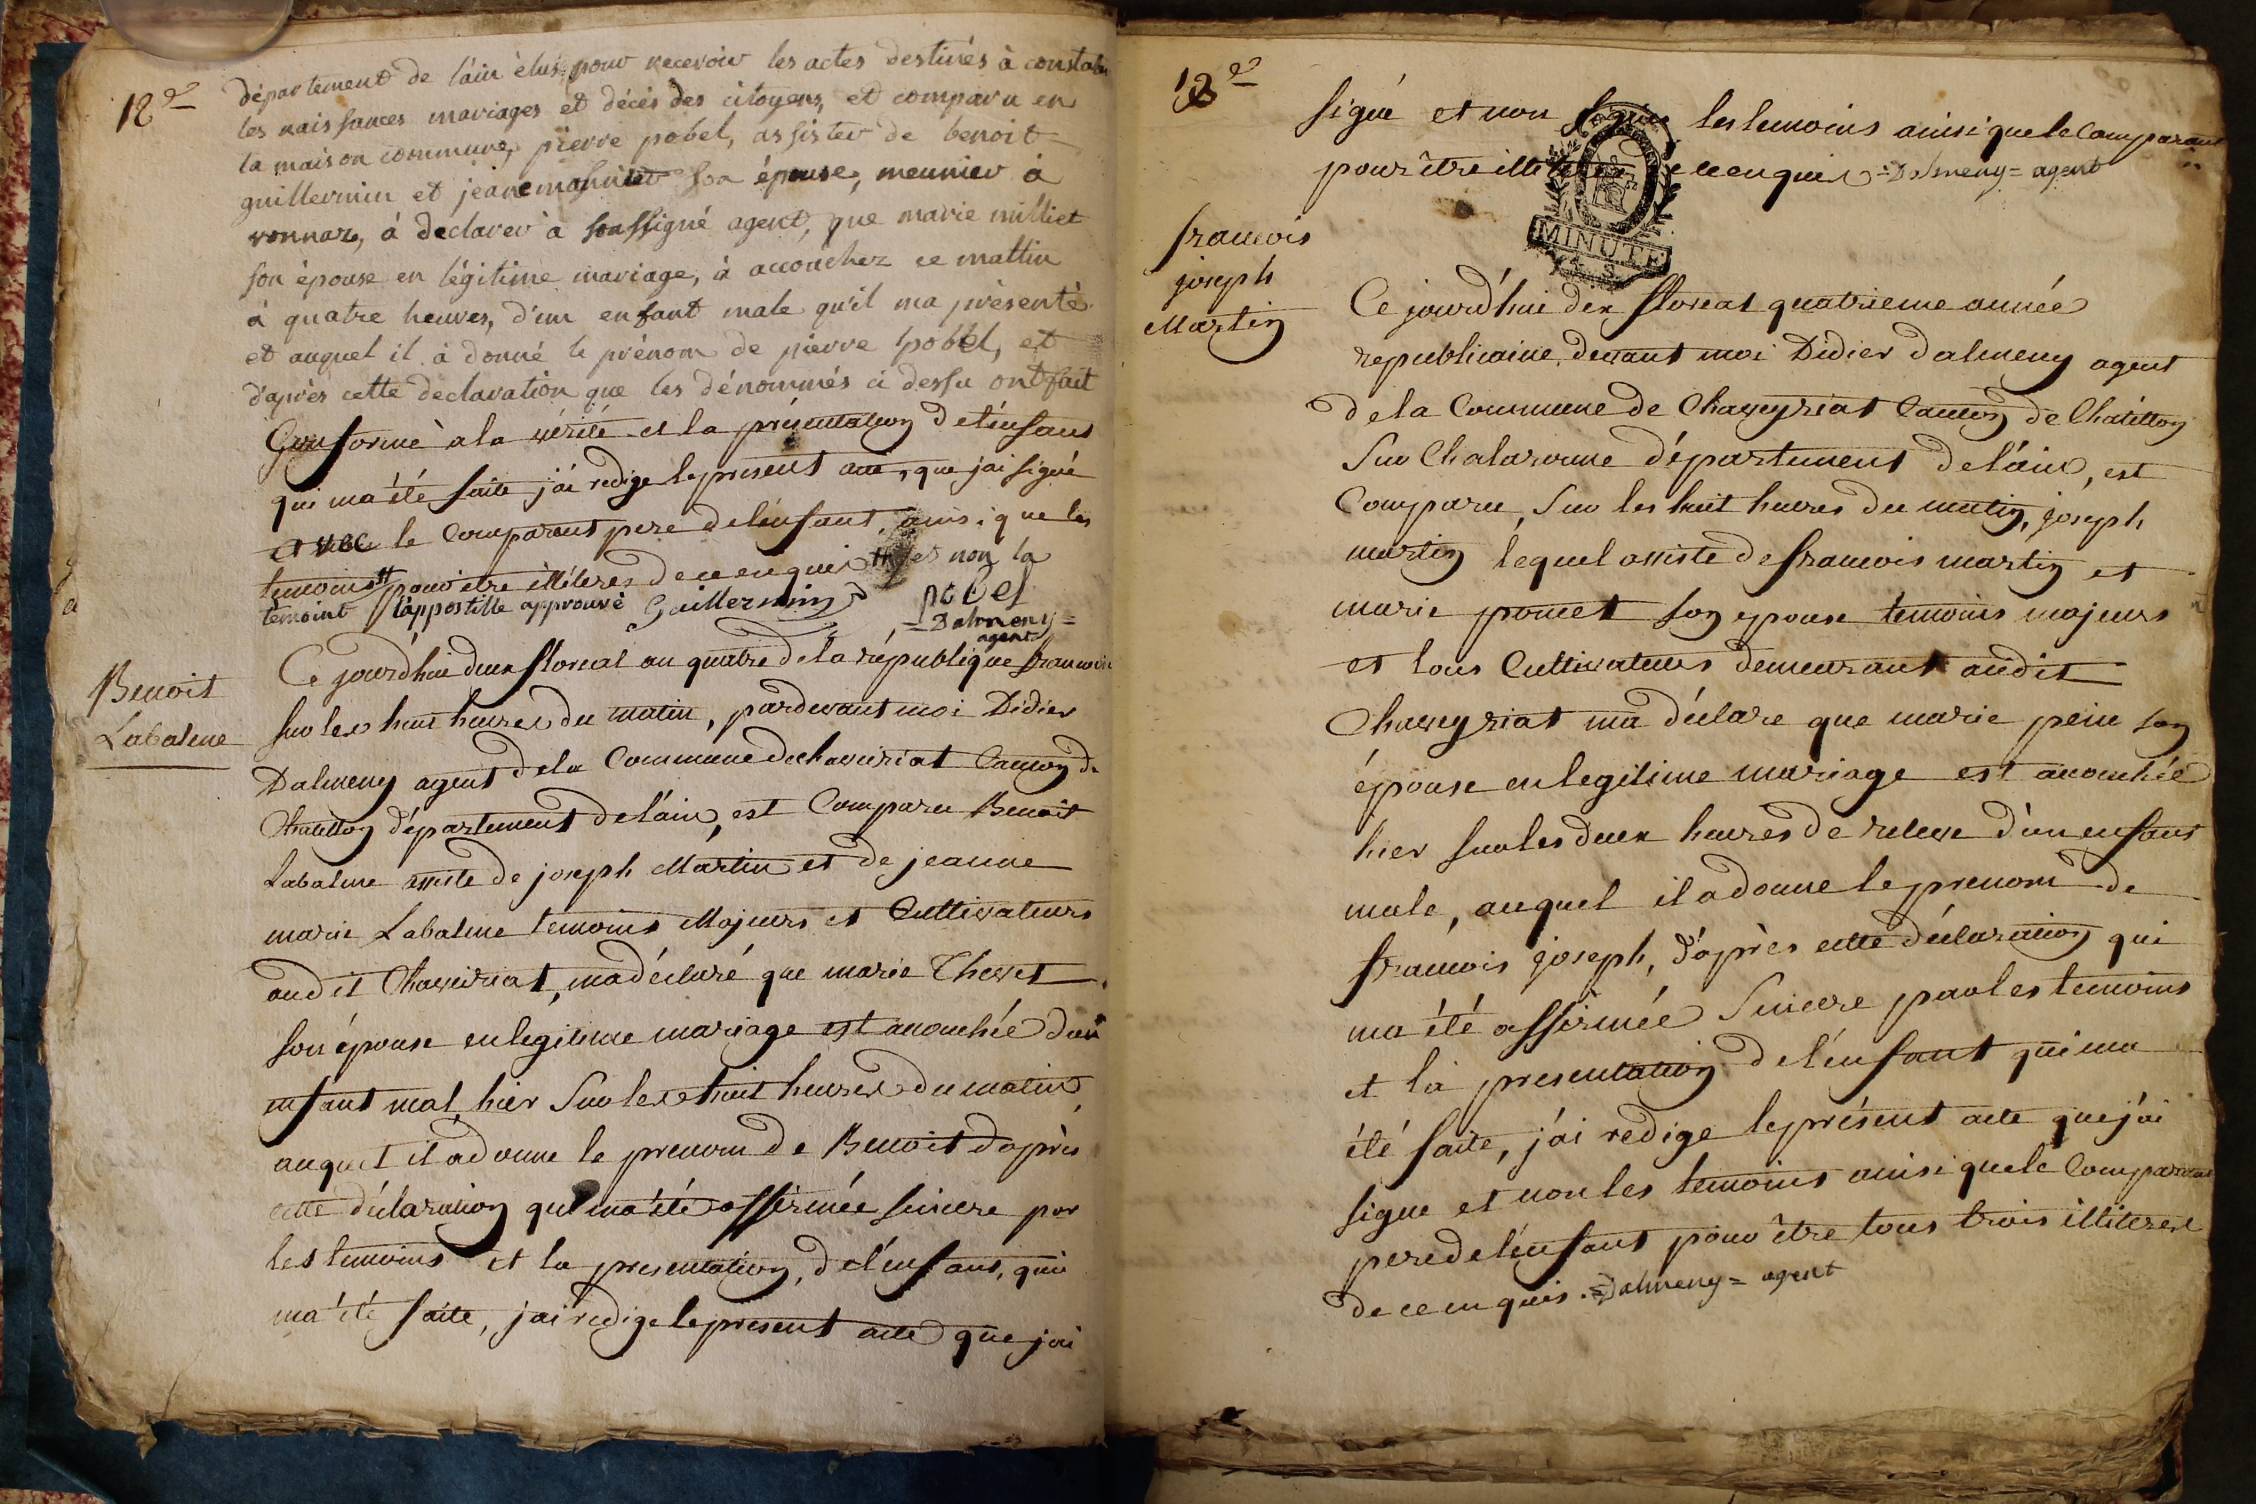 12e
département de l'ain élus pour recevoir les actes destinés à constater
les naissances mariages et décès des citoyens, et comparu en
la maison commune, pierre pobel, assister de benoit
guillermin et jeane son épouse, meunier à
vonnaz, à declarer à soussigné agent, que marie milliet
son épouse en légitime mariage, à accouchez ce mattin
à quatre heures, d'un enfant male qu'il ma présenté
et auquel il à donné le prénom de pierre pobel, et
d'après cette declaration que les dénommés ci dessu ont fait
Conforme à la vérité et la présentation de l'enfant
qui ma été faite j'ai redige le present acte, que jai signé
et avec le Comparant pere de l'enfant, ainsi que les
temoins # pour etre illiteres de ce enquis # et non la
temoint l'appostille approuvé Guillermin pobel
=Dalmeny=
agent
Benoit
Labalme
Ce jourd'hui deux floreal an quatre de la république francoise
sur les huit heures du matin, pardevant moi Didier
Dalmeny agent de la Commune de chaveiriat Canton de
Chatillon département de l'ain, est Comparu Benoit
Labalme assiste de joseph Martin et de jeanne
marie Labalme temoins Majeurs et Cultivateurs
audit Chaveiriat, ma déclaré que marie Thevet
son épouse en legitime mariage est acouchée d'un
enfant mal, hier Sur les huit heures du matin
auquel il a donne le prenom de Benoit d'après
cette déclaration qui ma été affirmée sincere par
les temoins et la presentation, de l'enfant, qui
ma été faite, j'ai redige le present acte que jai
13e
signé et non signé les temoins ainsi que le Comparant
pour être de ce enquis =Dalmeny= agent
MINUTE
francois
joseph
Martin
Ce jourd'hui dix floreal quatrieme année
republicaine, devant moi Didier dalmeny agent
de la Commune de Chaveyriat Canton de Chatillon
Sur Chalaronne département de l'ain, est
Comparu, Sur les huit heures du matin, joseph
martin lequel assiste de francois martin et
marie poncet son epouse temoins majeurs
et tous Cultivateurs demeurant audit
Chaveyriat ma déclare que marie pein son
épouse en legitime mariage est acouchée
hier sur les deux heures de releve d'un enfant
male, auquel il a donne le prenom de
francois joseph, d'après cette déclaration qui
ma été affirmée Sincere par les temoins
et la presentation de l'enfant qui ma
été faite, j'ai redige le présent acte que j'ai
signe et non les temoins ainsi que le Comparant
pere de l'enfant pour être tous trois illiteres
de ce enquis. =Dalmeny= agent